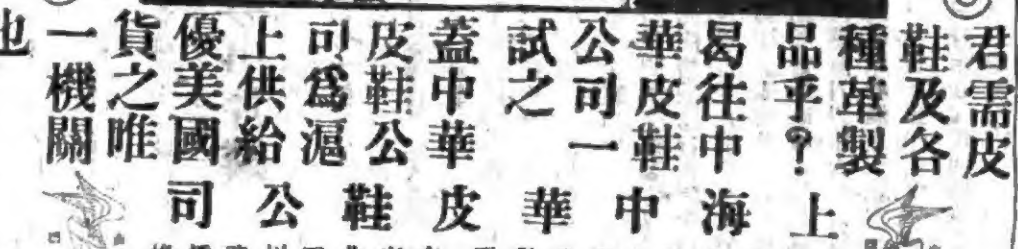 君需皮
鞋及各
種革製
品乎？
曷往中
華皮鞋
公司一
試之
蓋中華
皮鞋公
司爲滬
上供給
優美國
貨之唯
一機關
也
上海中華皮鞋公司